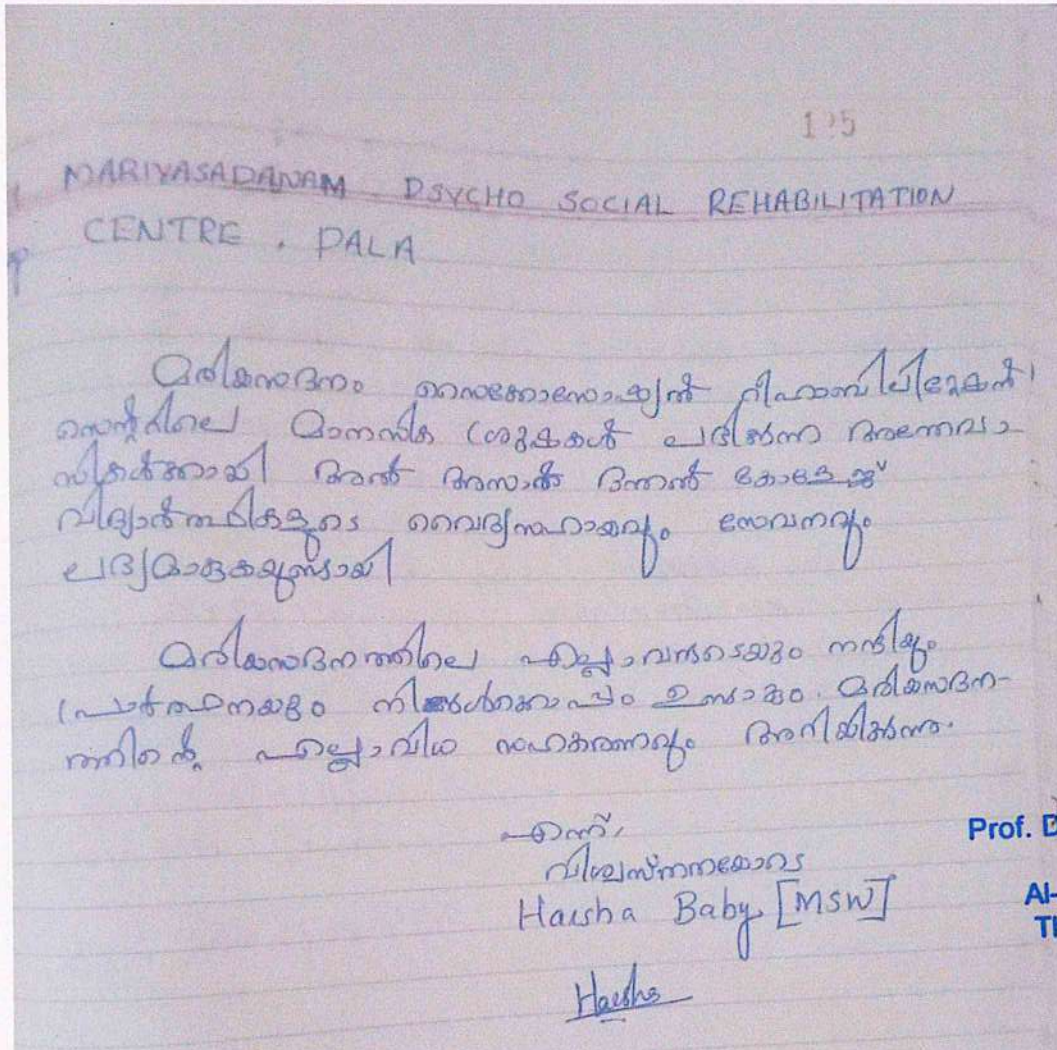 125
MARIYASADANAM PSYCHO SOCIAL REHABILITATION
CENTRE . PALA
മരിയസദനം സൈക്കോസോഷ്യൽ റീഹാബിലിറ്റേഷൻ
സെന്ററിലെ മാനസിക ശുശ്രൂഷകൾ ലഭിക്കുന്ന അന്തേവാ-
സികൾക്കായി അൽ അസർ ദന്തൽ കോളേജ്
വിദ്യാർത്ഥികളുടെ വൈദ്യസഹായവും സേവനവും
ലഭ്യമാകുകയുണ്ടായി
മരിയസദനത്തിലെ എല്ലാവരുടെയും നന്ദിയും
പ്രാർത്ഥനയും നിങ്ങൾക്കൊപ്പം ഉണ്ടാകും. മരിയസദന-
ത്തിന്റെ എല്ലാവിധ സഹകരണവും അറിയിക്കുന്നു.
എന്ന്,
വിശ്വസ്തതയോടെ
Harsha Baby [MSW]
Harsha
Prof. D
Al-